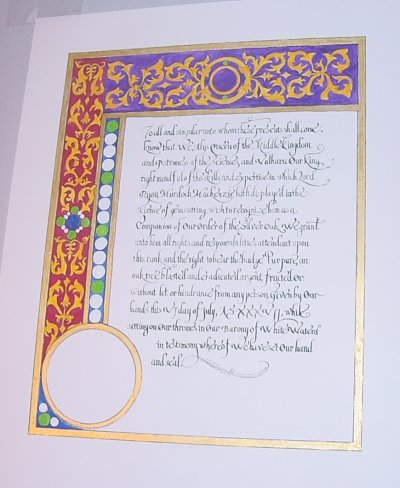 To all and singular unto whom these presents shall come,
know that We, Alys Queen of the Middle Kingdom
and Patroness of the Sciences, and Valharic Our King,
right mindful of the skills and expertise in which Lord
Ryan Murdoch Mackenzie hath displayed in the
Science of gem cutting, wish to recognize him as a
Companion of Our Order of the Silver Oak. We grant
unto him all rights and responsibilities attendant upon
this rank and the right to bear the badge Purpure, an
oak tree blasted and eradicated argent, fructed Or
without let or hindrance from any person. Given by Our
hands this day of July, A.S. XXXVII, while
sitting on Our thrones in Our Barony of White Waters
in testimony whereof We have set Our hand
and seal.